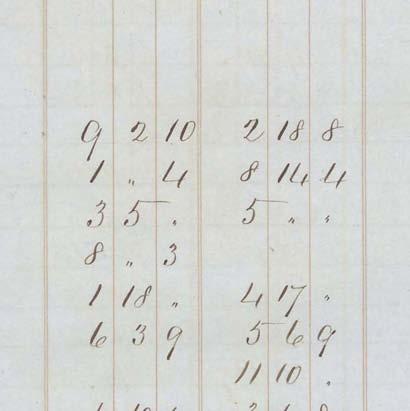 9 2 10 2 18 8
1 " 4 8 14 4
3 5 " 5 " "
8 " 3
1 18 " 4 17 "
6 3 9 5 6 9
11 10 "